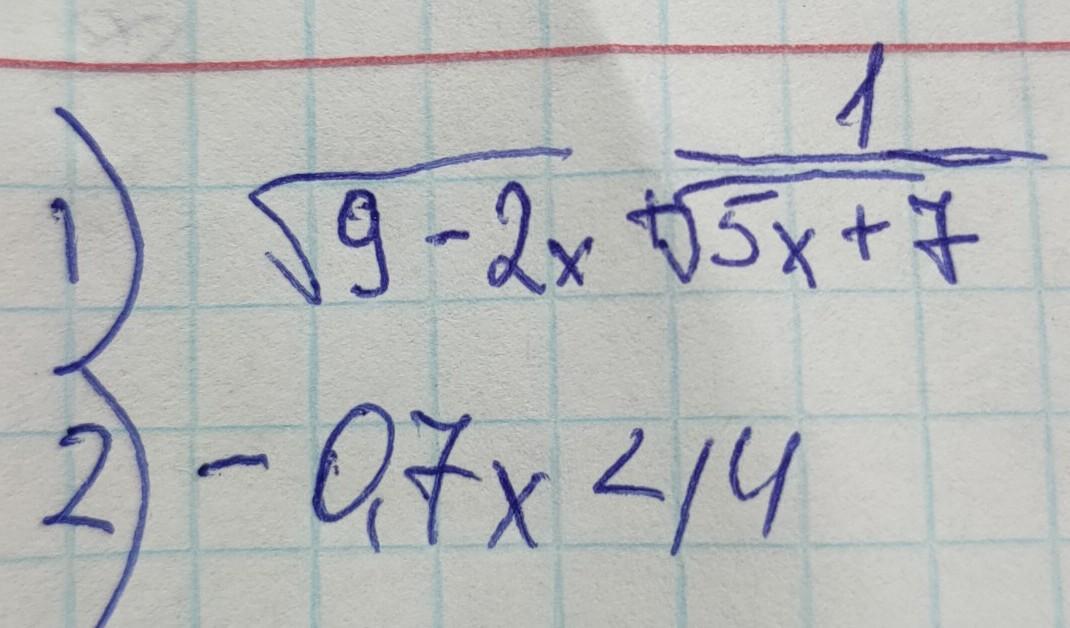 1) √9-2x + 1/√5x+7
2) -0,7x < 14